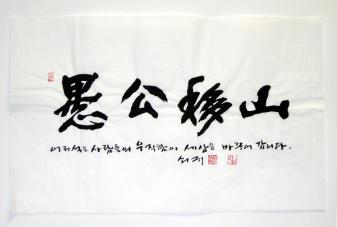 愚公移山
어리석은 사람들의 우직함이 세상을 바꾸어 갑니다.
쇠귀